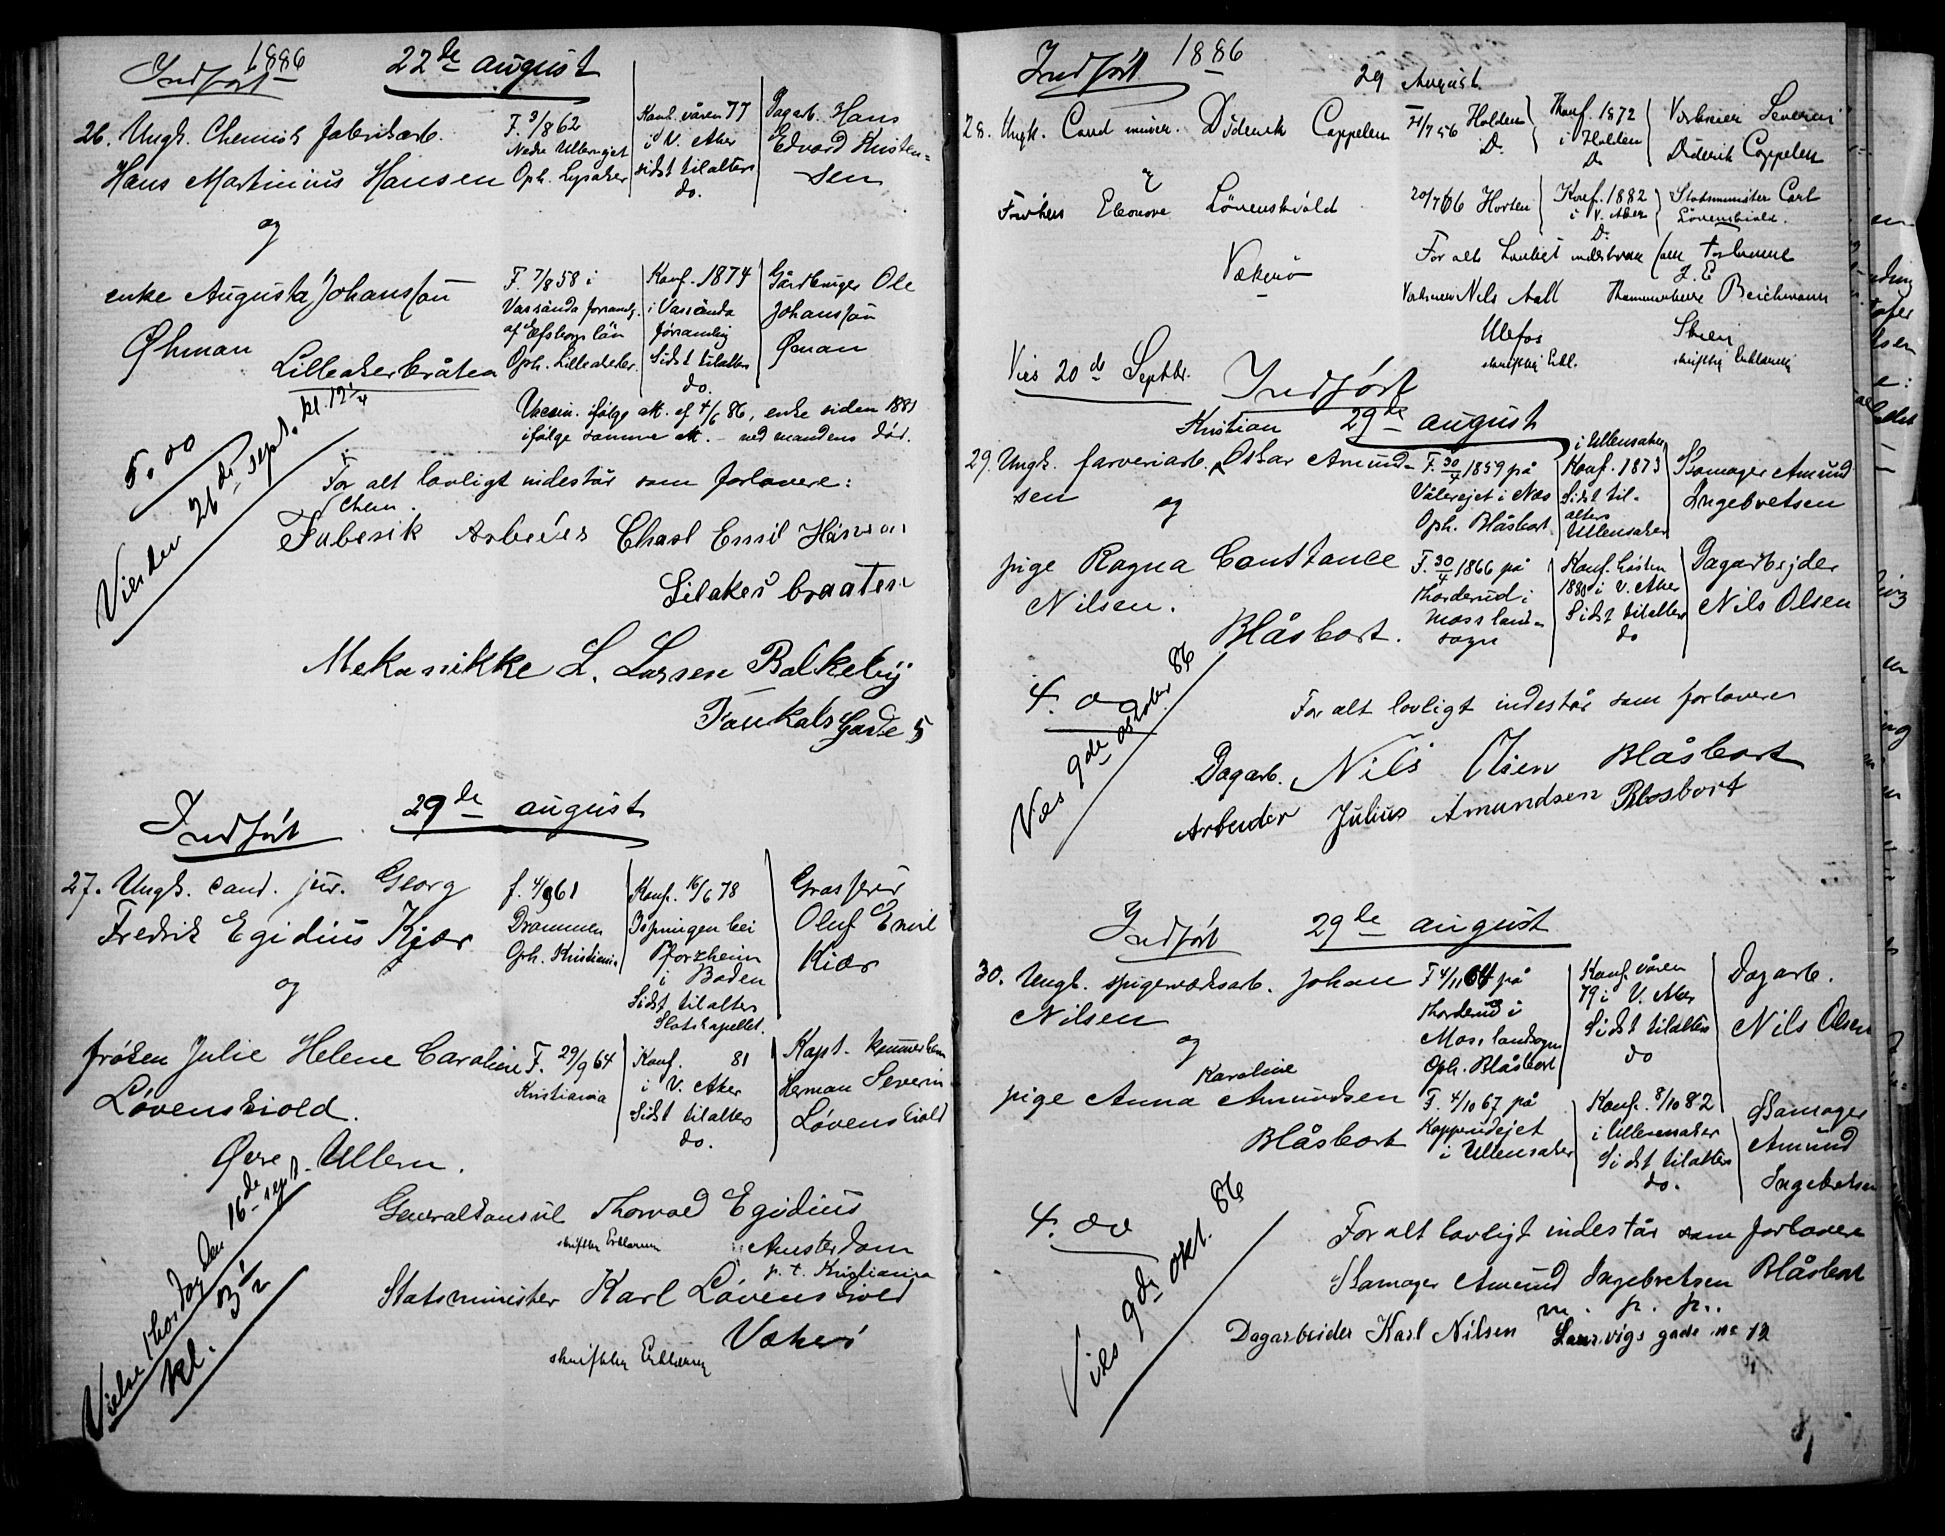 1886
Indført 22de august
26. Ungk. Chemisk fabrikarb.
Hans Martinius Hansen
F. 3/8 62
Nedre Ullernejet
Oph. Lysaker
Konf. våren 77
i V. Aker
sidst tilalters
do.
Dagarb. Hans
Edvard Kristen=
sen
og
enke Augusta Johansson
Øhman
Lilleakerbråten
F. 7/8 58 i
Vassända forsamlg.
af Elfsborgs län
Oph. Lilleaker
Konf. 1874
i Vassända
församling
Sidst tilalters
do.
Gårdbruger Ole
Johansson
Øman
ifølge att. af 4/6 86, enke siden 1881
ifølge samme att. - ved mandens död.
5.00
Vies den 26de sept. kl. 12 1/4
For alt lovligt indestår som forlovere:
Chem.
Faberik Arbeider Charl Emil Hansen
Lilaker braaten
Mekanikke L. Larsen Balkeby
Gade 5
Indført 29de august
27. Ungk. cand. jur. Georg
Fredrik Egidius Kjær
f. 4/9 61
Drammen
Oph. Kristiania
Konf. 16/6 78
Ispringen bei
Pforzheim
i Baden
Sidst tilalters
Slotskapellet.
Grosserer
Oluf Emil
Kiær
og
frøken Julie Helene Caroline
Løvenskiold.
F. 29/9 64
Kristiania
Konf. 81
i V. Aker
Sidst tilalters
do.
Kapt. kammerherre
Herman Severin
Løvenskiold
Øvre Ullern.
Vielse thorsdag den 16de sept.
kl. 3 1/2
Generalkonsul Thorvald Egidius
skriftlig Erklæring Amsterdam
p. t. Kristiania
Statsminister Karl Løvenskiold
Vækerø
skriftlig Erklæring
Indført 1886
29 August
28. Ungk. Cand miner. Diderik Cappelen
Holden
D.
Konf. 1872
i Holden
D.
Værkseier Severin
Diderik Cappelen
Frøken Eleonore Løvenskiold
20/7 66 Horten
Konf. 1882
i V. Aker
D.
Statsminister Carl
Løvenskiold.
Vækerø
For alt Lovligt indestaar som Forlovere
Værkseier Nils Aall Kammerherre Reichmann
Ulefos Skien
skriftlig Erkl. skriftlig Erklæring
Vies 20de Septbr.
Indført
29de august
29. Ungk. farveriarb. Kristian Oskar Amund=
sen
F. 30/4 1859 på
Vålerejet i Næs
Oph. Blåsbort
i Ullensaker
Konf. 1873
Sidst til-
alters
Ullensaker
Skomager Amund
Ingebretsen
og
pige Ragna Constance
Nilsen.
F. 30/4 1866 på
Thorderud i
Moss land=
sogn
Konf. høsten
1880 i V. Aker
Sidst tilalters
do
Dagarbejder
Nils Olsen
Blåsbort.
4.00
Vies 9de oktober 86
For alt lovligt indestår som forlovere
Dagarb. Nils Olsen Blåsbort
Arbeider Julius Amundsen Blosbort
Indført 29de august
30. Ungk. spigerværksarb. Johan
Nilsen
F 4/11 64 på
Thorderud i
Moss landsogn
Oph. Blåsbort
Konf. våren
79 i V. Aker
Sidst tilalters
do
Dagarb.
Nils Olsen
og
pige Anna Karoline Amundsen
Blåsbort
F. 4/10 67 på
Kopperudejet
i Ullensaker
Konf. 8/10 82
i Ullensaker
Sidst tilalters
do.
Skomager
Amund
Ingebretsen
4.00
Vies 9de okt. 86
For alt lovligt indestår som forlovere
Skomager Amund Ingebretsen Blåsbort
m. p. p.
Dagarbeider Karl Nilsen Laurvigs gade No 12